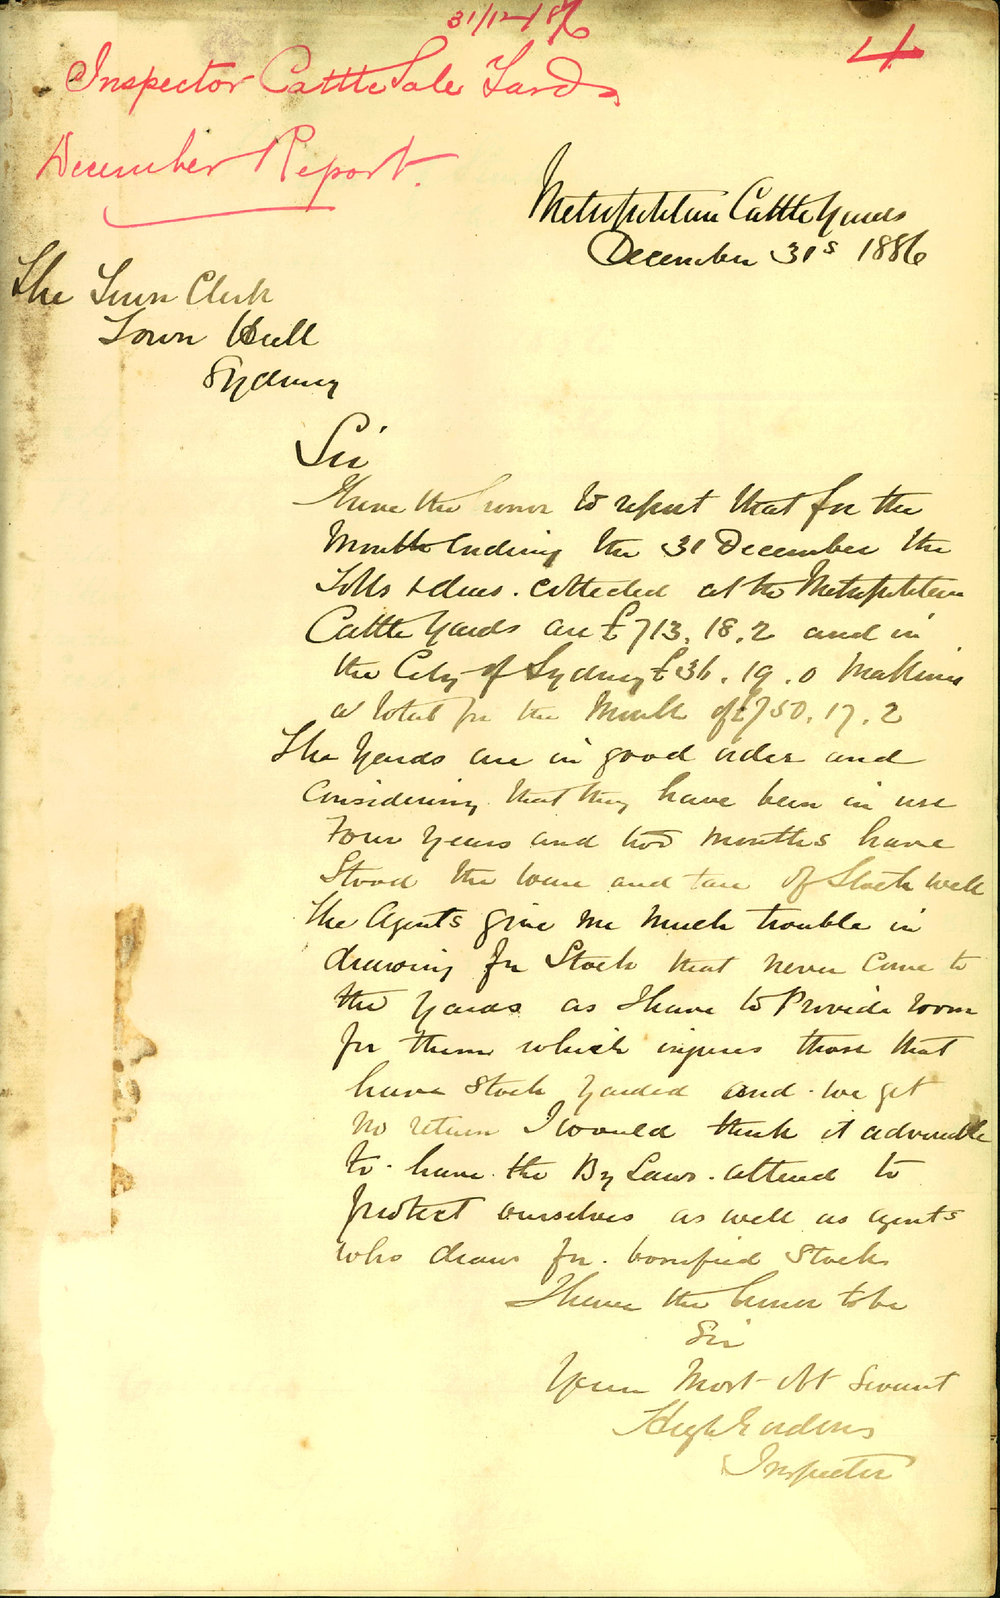 31/12/86
4
Inspector Cattle Sale Yards
December Report.
Metropolitan Cattle Yards
December 31s 1886
The Town Clerk
Town Hall
Sydney
Sir
I have the honor to report that for the
Month Ending the 31 December the
Tolls & dues. collected at the Metropolitan
Cattle Yards are £713.18.2 and in
the City of Sydney £36.19.0 Making
a total for the Month of £750.17.2
The Yards are in good order and
Considering that they have been in use
Four Years and two months have
Stood the ware and tare of Stock well
The Agents give me much trouble in
drawing for Stock that never Come to
the Yards as I have to Provide room
for them which injures those that
have Stock Yarded and we get
no return I would think it adviseable
to have the By Laws. altered to
protect ourselves as well as agents
who draw for. bonified Stock
I have the honor to be
Sir
Your Most Obt Servant
Hugh
Inspector